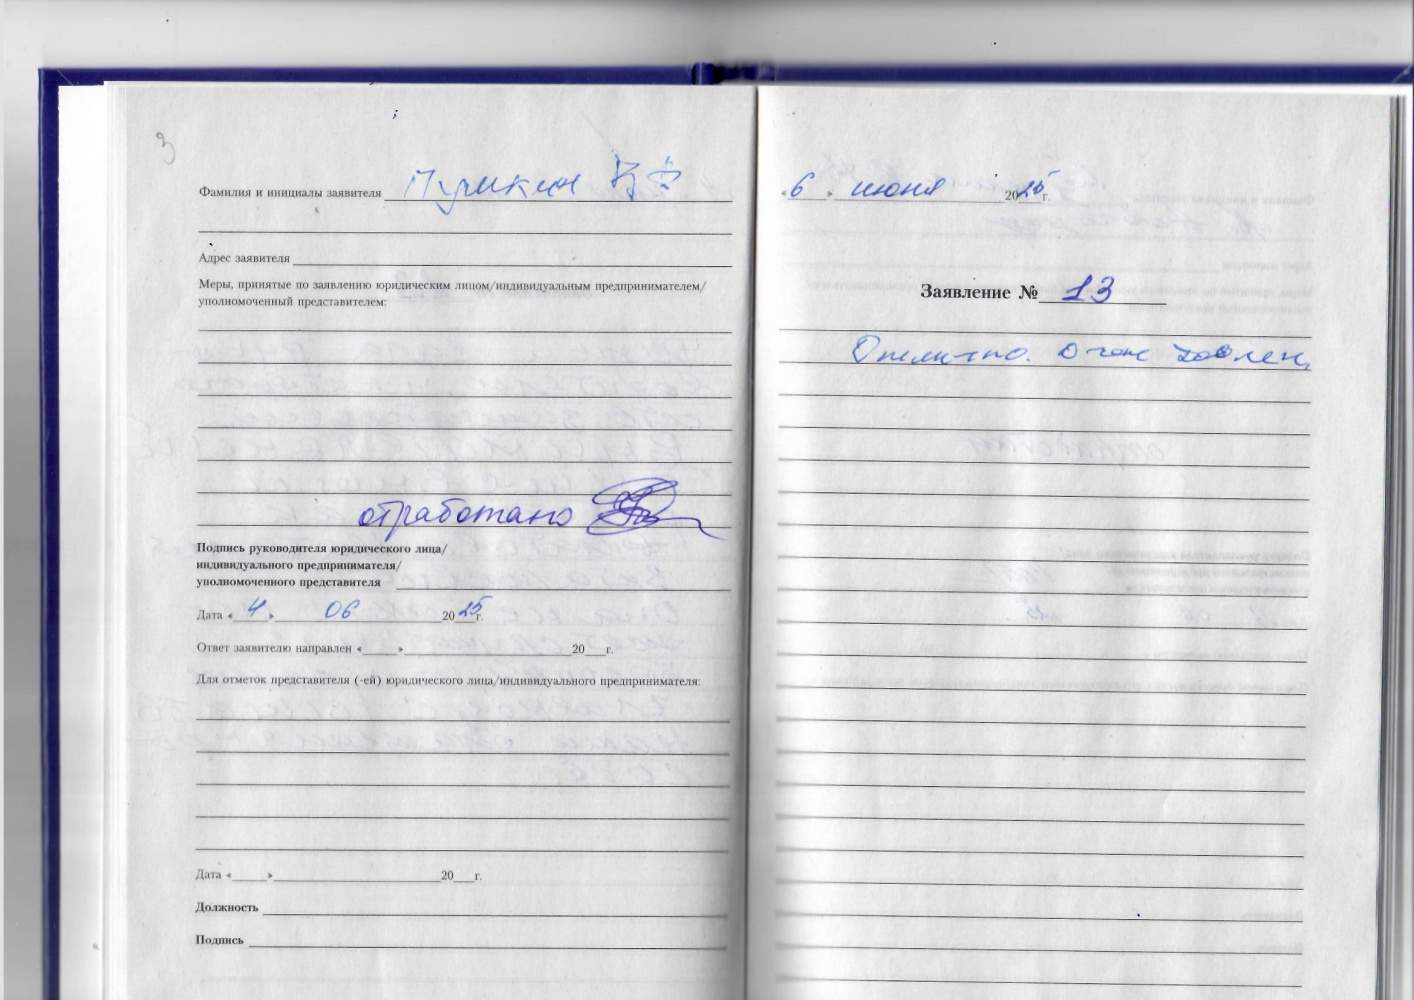 3
Фамилия и инициалы заявителя Пушкин
Адрес заявителя
Меры, принятые по заявлению юридическим лицом/индивидуальным предпринимателем/
уполномоченный представителем:
отработано
Подпись руководителя юридического лица/
индивидуального предпринимателя/
уполномоченного представителя
Дата «4» 06 2025г.
Ответ заявителю направлен «___» 20___г.
Для отметок представителя (-ей) юридического лица/индивидуального предпринимателя:
Дата «___» 20___г.
Должность
Подпись
«6» июня 2025г.
Заявление № 13
Отлично.